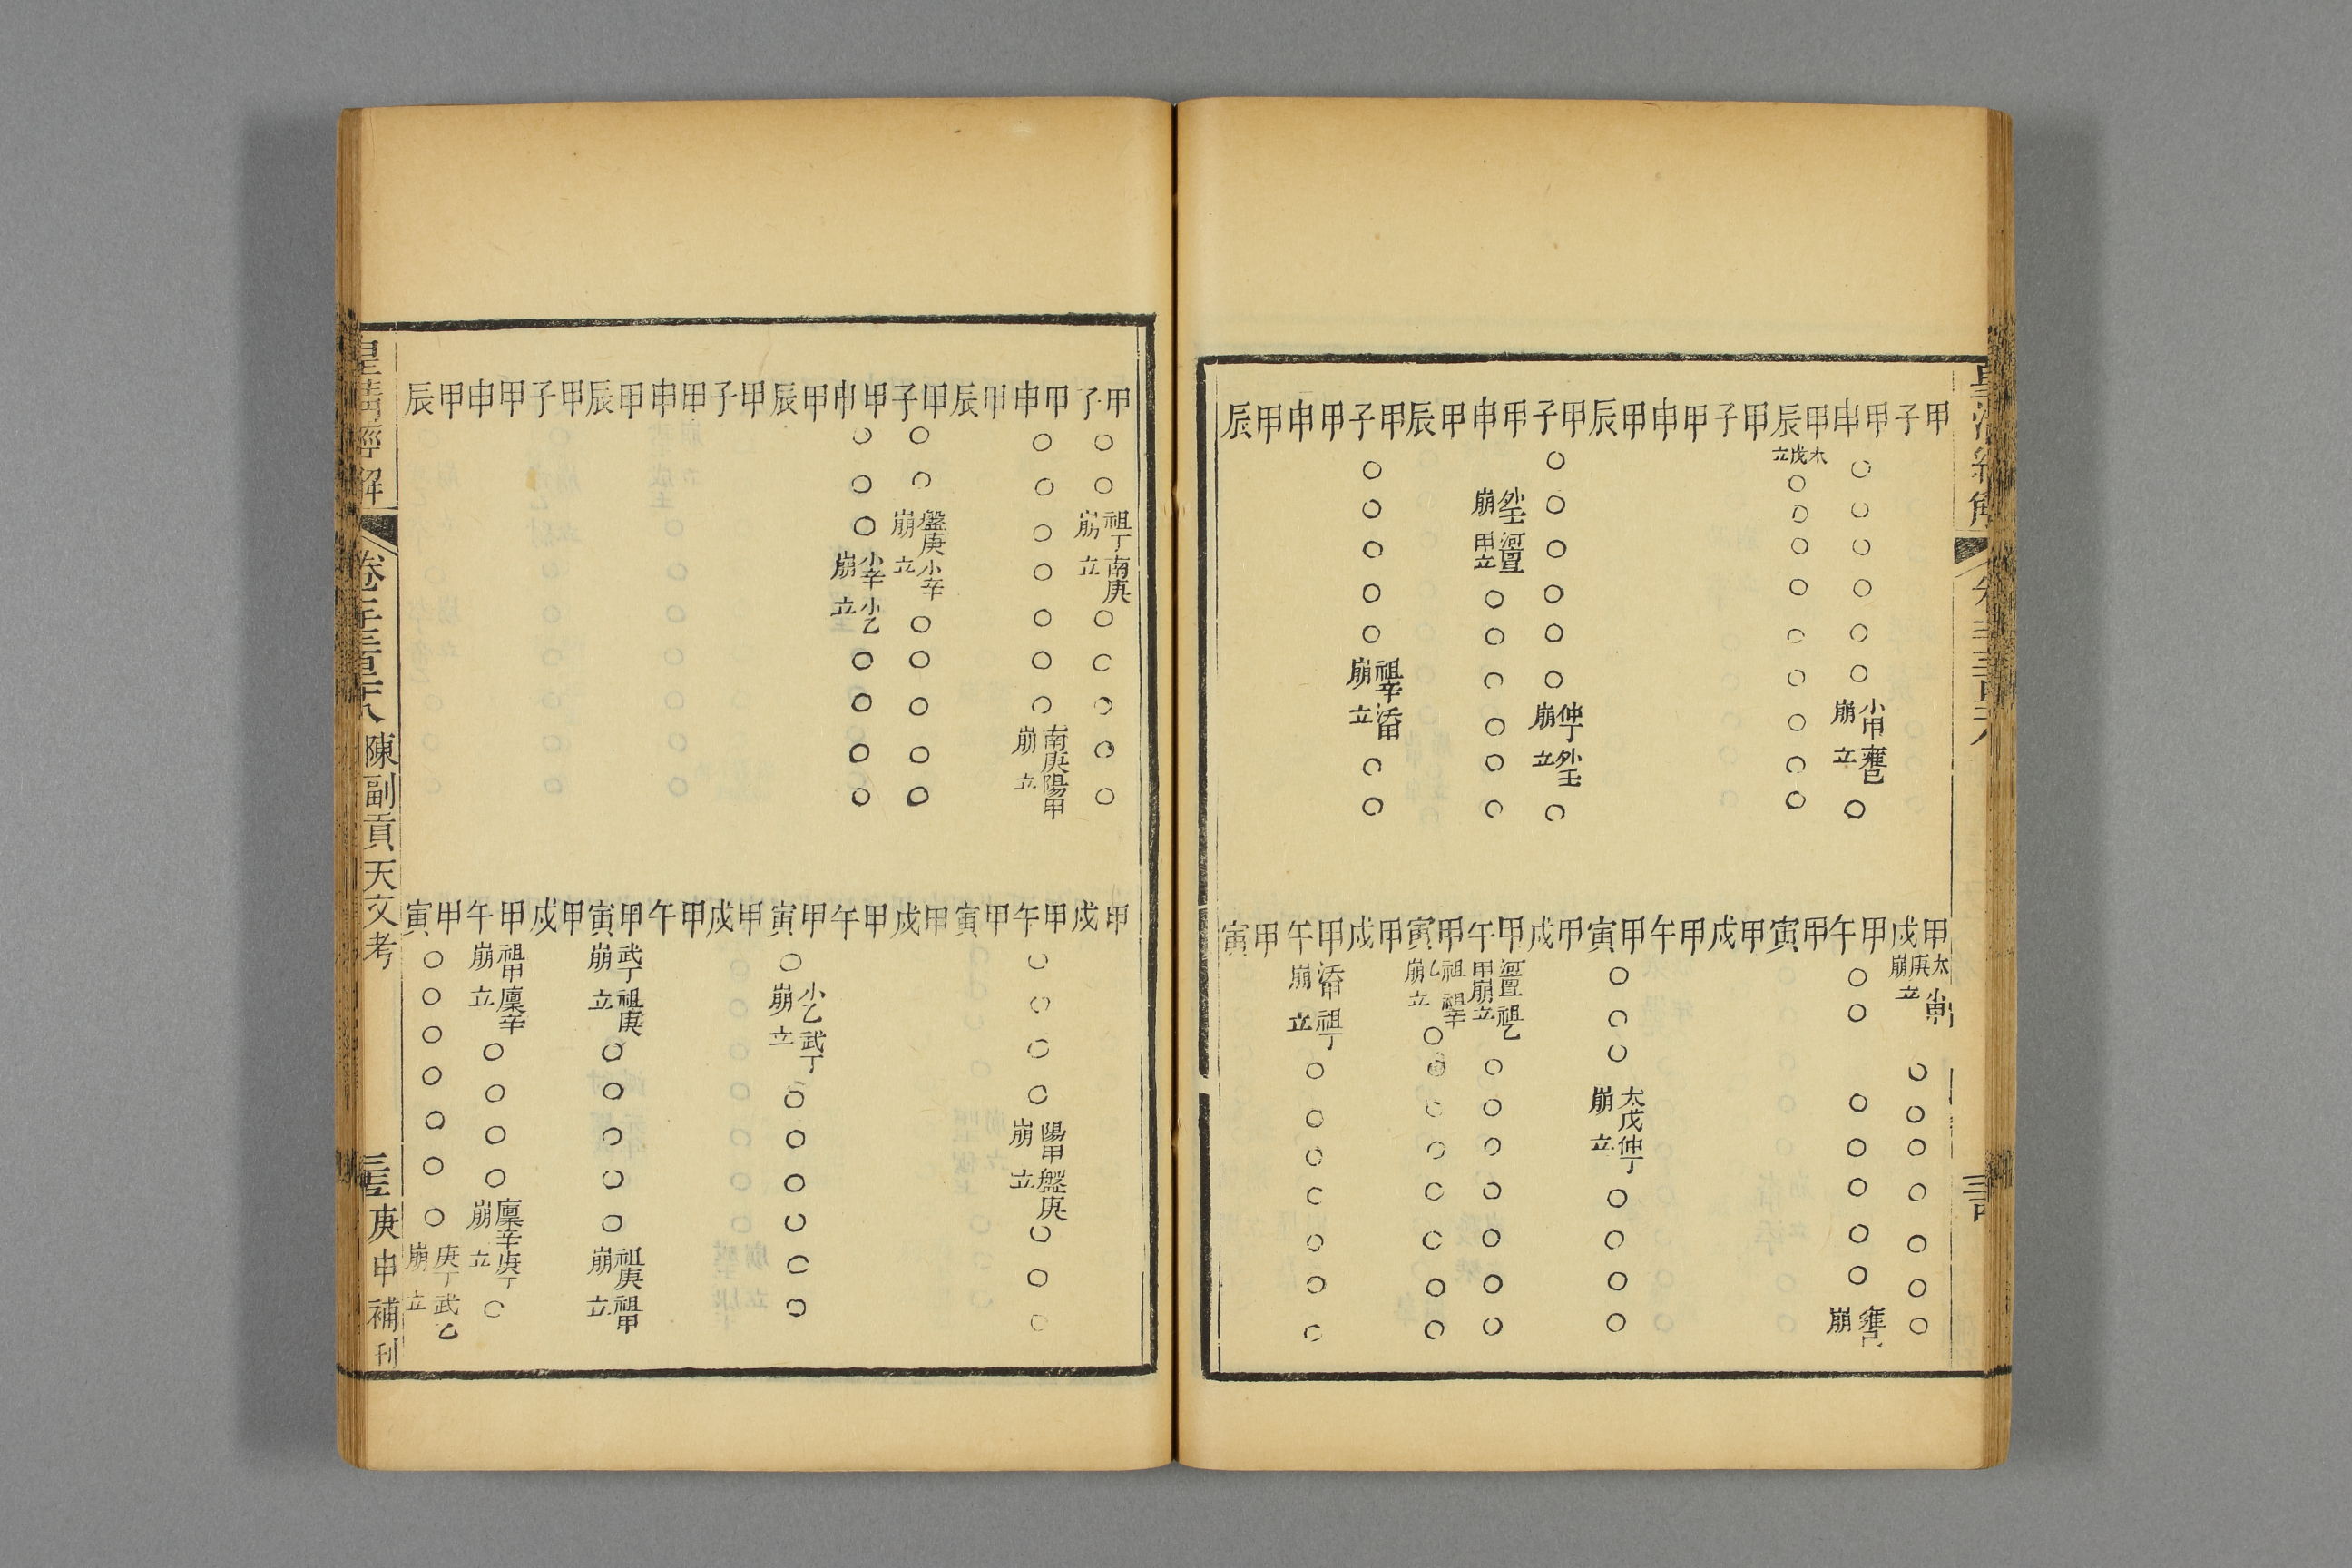 甲子
甲戌太庚崩小甲立○○○○○○○
甲申○○○○○○小甲崩雍己立○
甲午○○○○○○○雍己崩
甲辰太戊立○○○○○○○○○
甲寅
甲子
甲戌
甲申
甲午
甲辰
甲寅○○○太戊崩仲丁立○○○○
甲子○○○○○○仲丁崩外壬立○
甲戌
甲申外壬崩河亶甲立○○○○○○
甲午河亶甲崩祖乙立○○○○○○○
甲辰
甲寅祖乙崩祖辛立○○○○○○○○
甲子○○○○○祖辛崩沃甲立○○
甲戌
甲申
甲午沃甲崩祖丁立○○○○○○○
甲辰
甲寅
甲子○○祖丁崩南庚立○○○○○
甲戌
甲申○○○○○○○南庚崩陽甲立
甲午○○○○陽甲崩盤庚立○○○
甲辰
甲寅
甲子○○盤庚崩小辛立○○○○○
甲戌
甲申○○○小辛崩小乙立○○○○
甲午
甲辰
甲寅○小乙崩武丁立○○○○○○
甲子
甲戌
甲申
甲午
甲辰
甲寅武丁崩祖庚立○○○○○祖庚崩祖甲立
甲子
甲戌
甲申
甲午祖甲崩廩辛立○○○○廩辛崩庚丁立○
甲辰
甲寅○○○○○○○庚丁崩武乙立
皇清經解 陳副貢天文考 庚申補刊